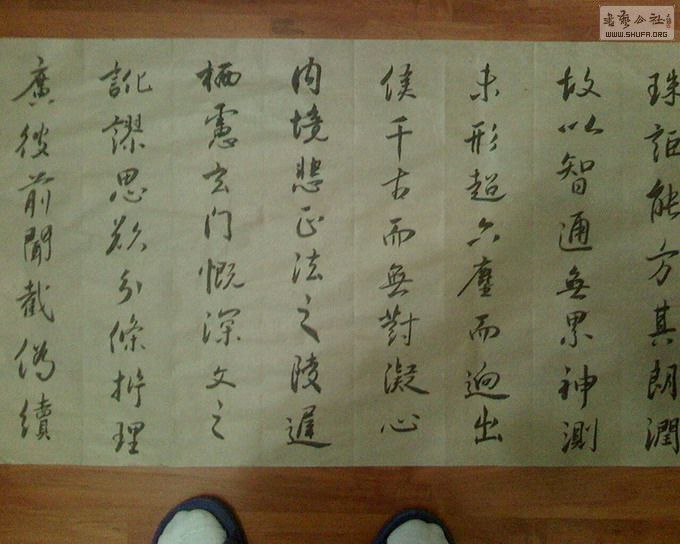 珠詎能方其朗潤
故以智通無累神測
未形超六塵而迥出
隻千古而無對凝心
内境悲正法之陵遲
栖慮玄门慨深文之
訛謬思欲分條析理
廣彼前聞截偽續
書藝公社
WWW.SHUFA.ORG